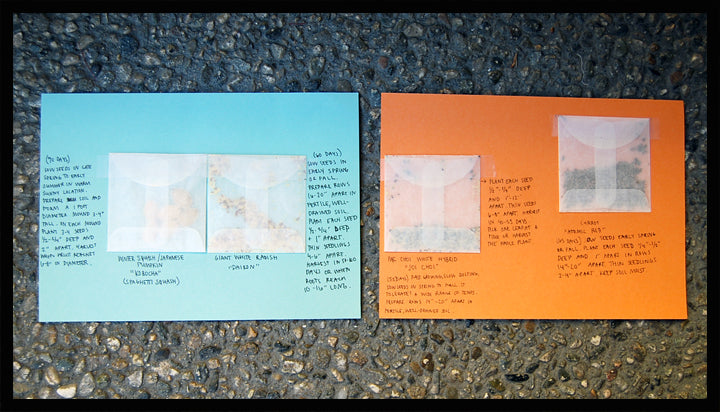 (90 DAYS)
SOW SEEDS IN LATE
SPRING TO EARLY
SUMMER IN WARM
SUNNY LOCATION.
PREPARE SOIL AND
FORM A 1 FOOT
DIAMETER MOUND
PLANT 3-4 SEEDS
DEEP AND
APART. HARVEST
WHEN FRUIT REACHES
IN DIAMETER.
WINTER SQUASH/JAPANESE
PUMPKIN
"KABOCHA"
(SPAGHETTI SQUASH)
GIANT WHITE RADISH
"DAIKON"
(60 DAYS)
SOW SEEDS IN
EARLY SPRING
OR FALL.
PREPARE ROWS
16-20" APART IN
FERTILE, WELL-
DRAINED SOIL.
PLANT EACH SEED
DEEP
+ 1" APART.
THIN SEEDLINGS
4-6" APART.
HARVEST IN
DAYS OR WHEN
ROOTS REACH
10-16" LONG.
PAK CHOI WHITE HYBRID
"JOI CHOI"
FAST GROWING, LONG LASTING.
SOW SEEDS IN SPRING TO FALL. IT
TOLERATES A WIDE RANGE OF TEMPS.
PREPARE ROWS APART IN
FERTILE, WELL-DRAINED SOIL.
→ PLANT EACH SEED
1/4"-1/2" DEEP
AND
APART. THIN SEEDS
6-8" APART. HARVEST
IN DAYS
PICK THE LEAVES A
TIME OR HARVEST
THE WHOLE PLANT.
CARROT
"ATOMIC RED"
SOW SEEDS EARLY SPRING
OR FALL. PLANT EACH SEED 1/4"-1/2"
DEEP AND 1" APART IN ROWS
APART. THIN SEEDLINGS
APART. KEEP SOIL MOIST.